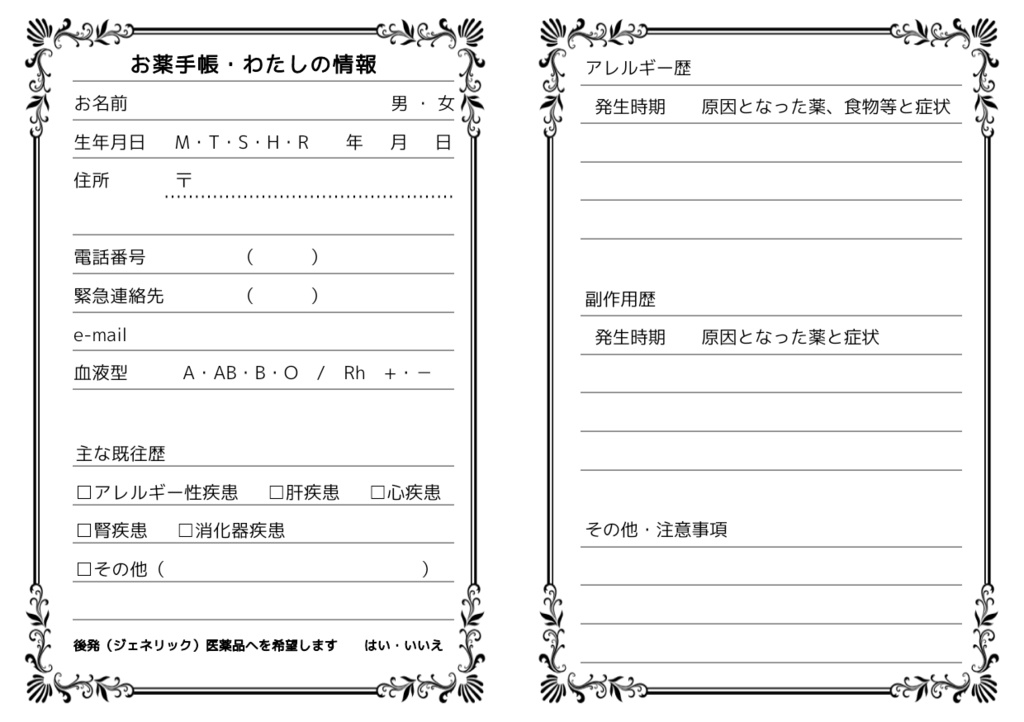 お薬手帳・わたしの情報
お名前 男 ・ 女
生年月日 M・T・S・H・R 年 月 日
住所 〒
電話番号 ( )
緊急連絡先 ( )
e-mail
血液型 A・AB・B・O / Rh +・－
主な既往歴
□アレルギー性疾患 □肝疾患 □心疾患
□腎疾患 □消化器疾患
□その他（ ）
後発（ジェネリック）医薬品へを希望します はい・いいえ
アレルギー歴
発生時期 原因となった薬、食物等と症状
副作用歴
発生時期 原因となった薬と症状
その他・注意事項